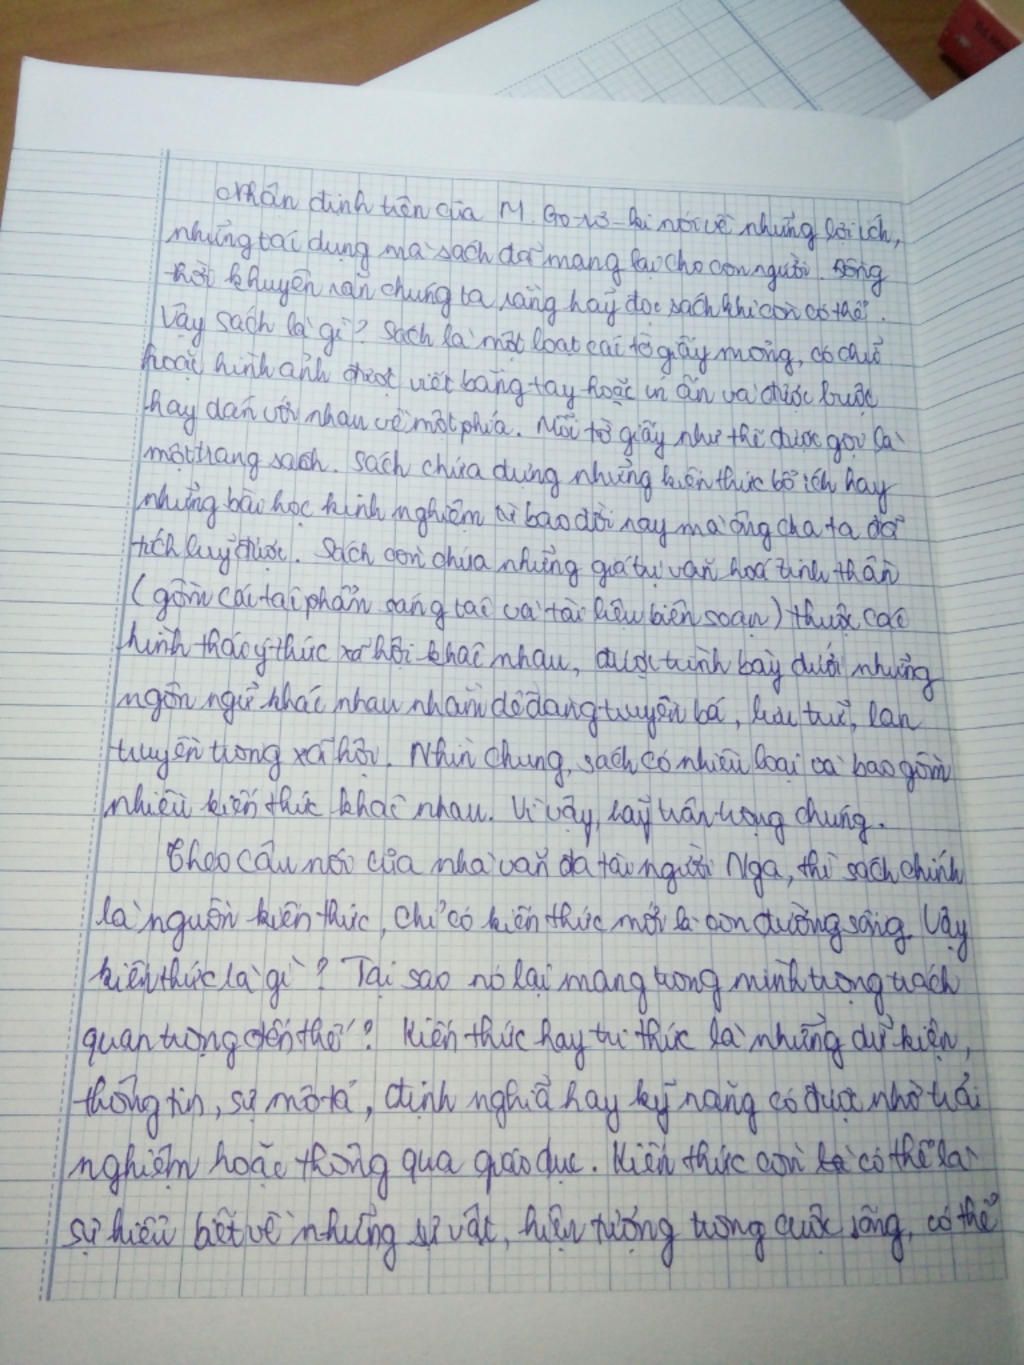 Nhận định trên của M. Go-rơ-ki nói về những lợi ích,
những tác dụng mà sách đã mang lại cho con người. Đồng
thời khuyên răn chúng ta rằng hãy đọc sách khi còn có thể.
Vậy sách là gì? Sách là một loạt các tờ giấy mỏng, có chữ
hoặc hình ảnh được viết bằng tay hoặc in ấn và được buộc
hay dán với nhau về một phía. Mỗi tờ giấy như thế được gọi là
một trang sách. Sách chứa dựng những kiến thức bổ ích hay
những bài học kinh nghiệm từ bao đời nay mà ông cha ta đã
tích luỹ được. Sách còn chứa những giá trị văn hoá tinh thần
(gồm các tác phẩm sáng tác và tài liệu biên soạn) thuộc các
hình thác ý thức xã hội khác nhau, được trình bày dưới những
ngôn ngữ khác nhau nhằm dễ dàng truyền bá, lưu trữ, lan
truyền trong xã hội. Nhìn chung, sách có nhiều loại và bao gồm
nhiều kiến thức khác nhau. Vì vậy, hãy trân trọng chúng.
Theo câu nói của nhà văn đa tài người Nga, thì sách chính
là nguồn kiến thức, chỉ có kiến thức mới là con đường sống. Vậy
kiến thức là gì? Tại sao nó lại mang trong mình trọng trách
quan trọng đến thế? Kiến thức hay tri thức là những dữ kiện,
thông tin, sự mô tả, định nghĩa hay kỹ năng có được nhờ trải
nghiệm hoặc thông qua giáo dục. Kiến thức còn có thể là
sự hiểu biết về những sự vật, hiện tượng trong cuộc sống, có thể